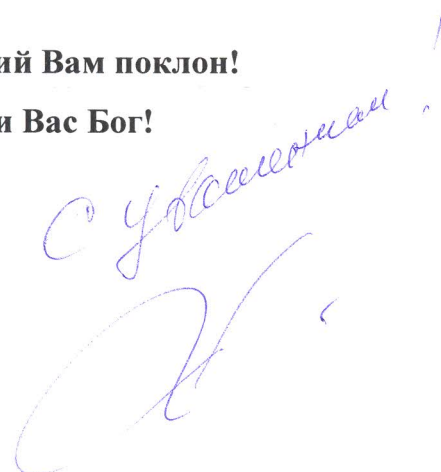 ий Вам поклон!
и Вас Бог!
С уважением!